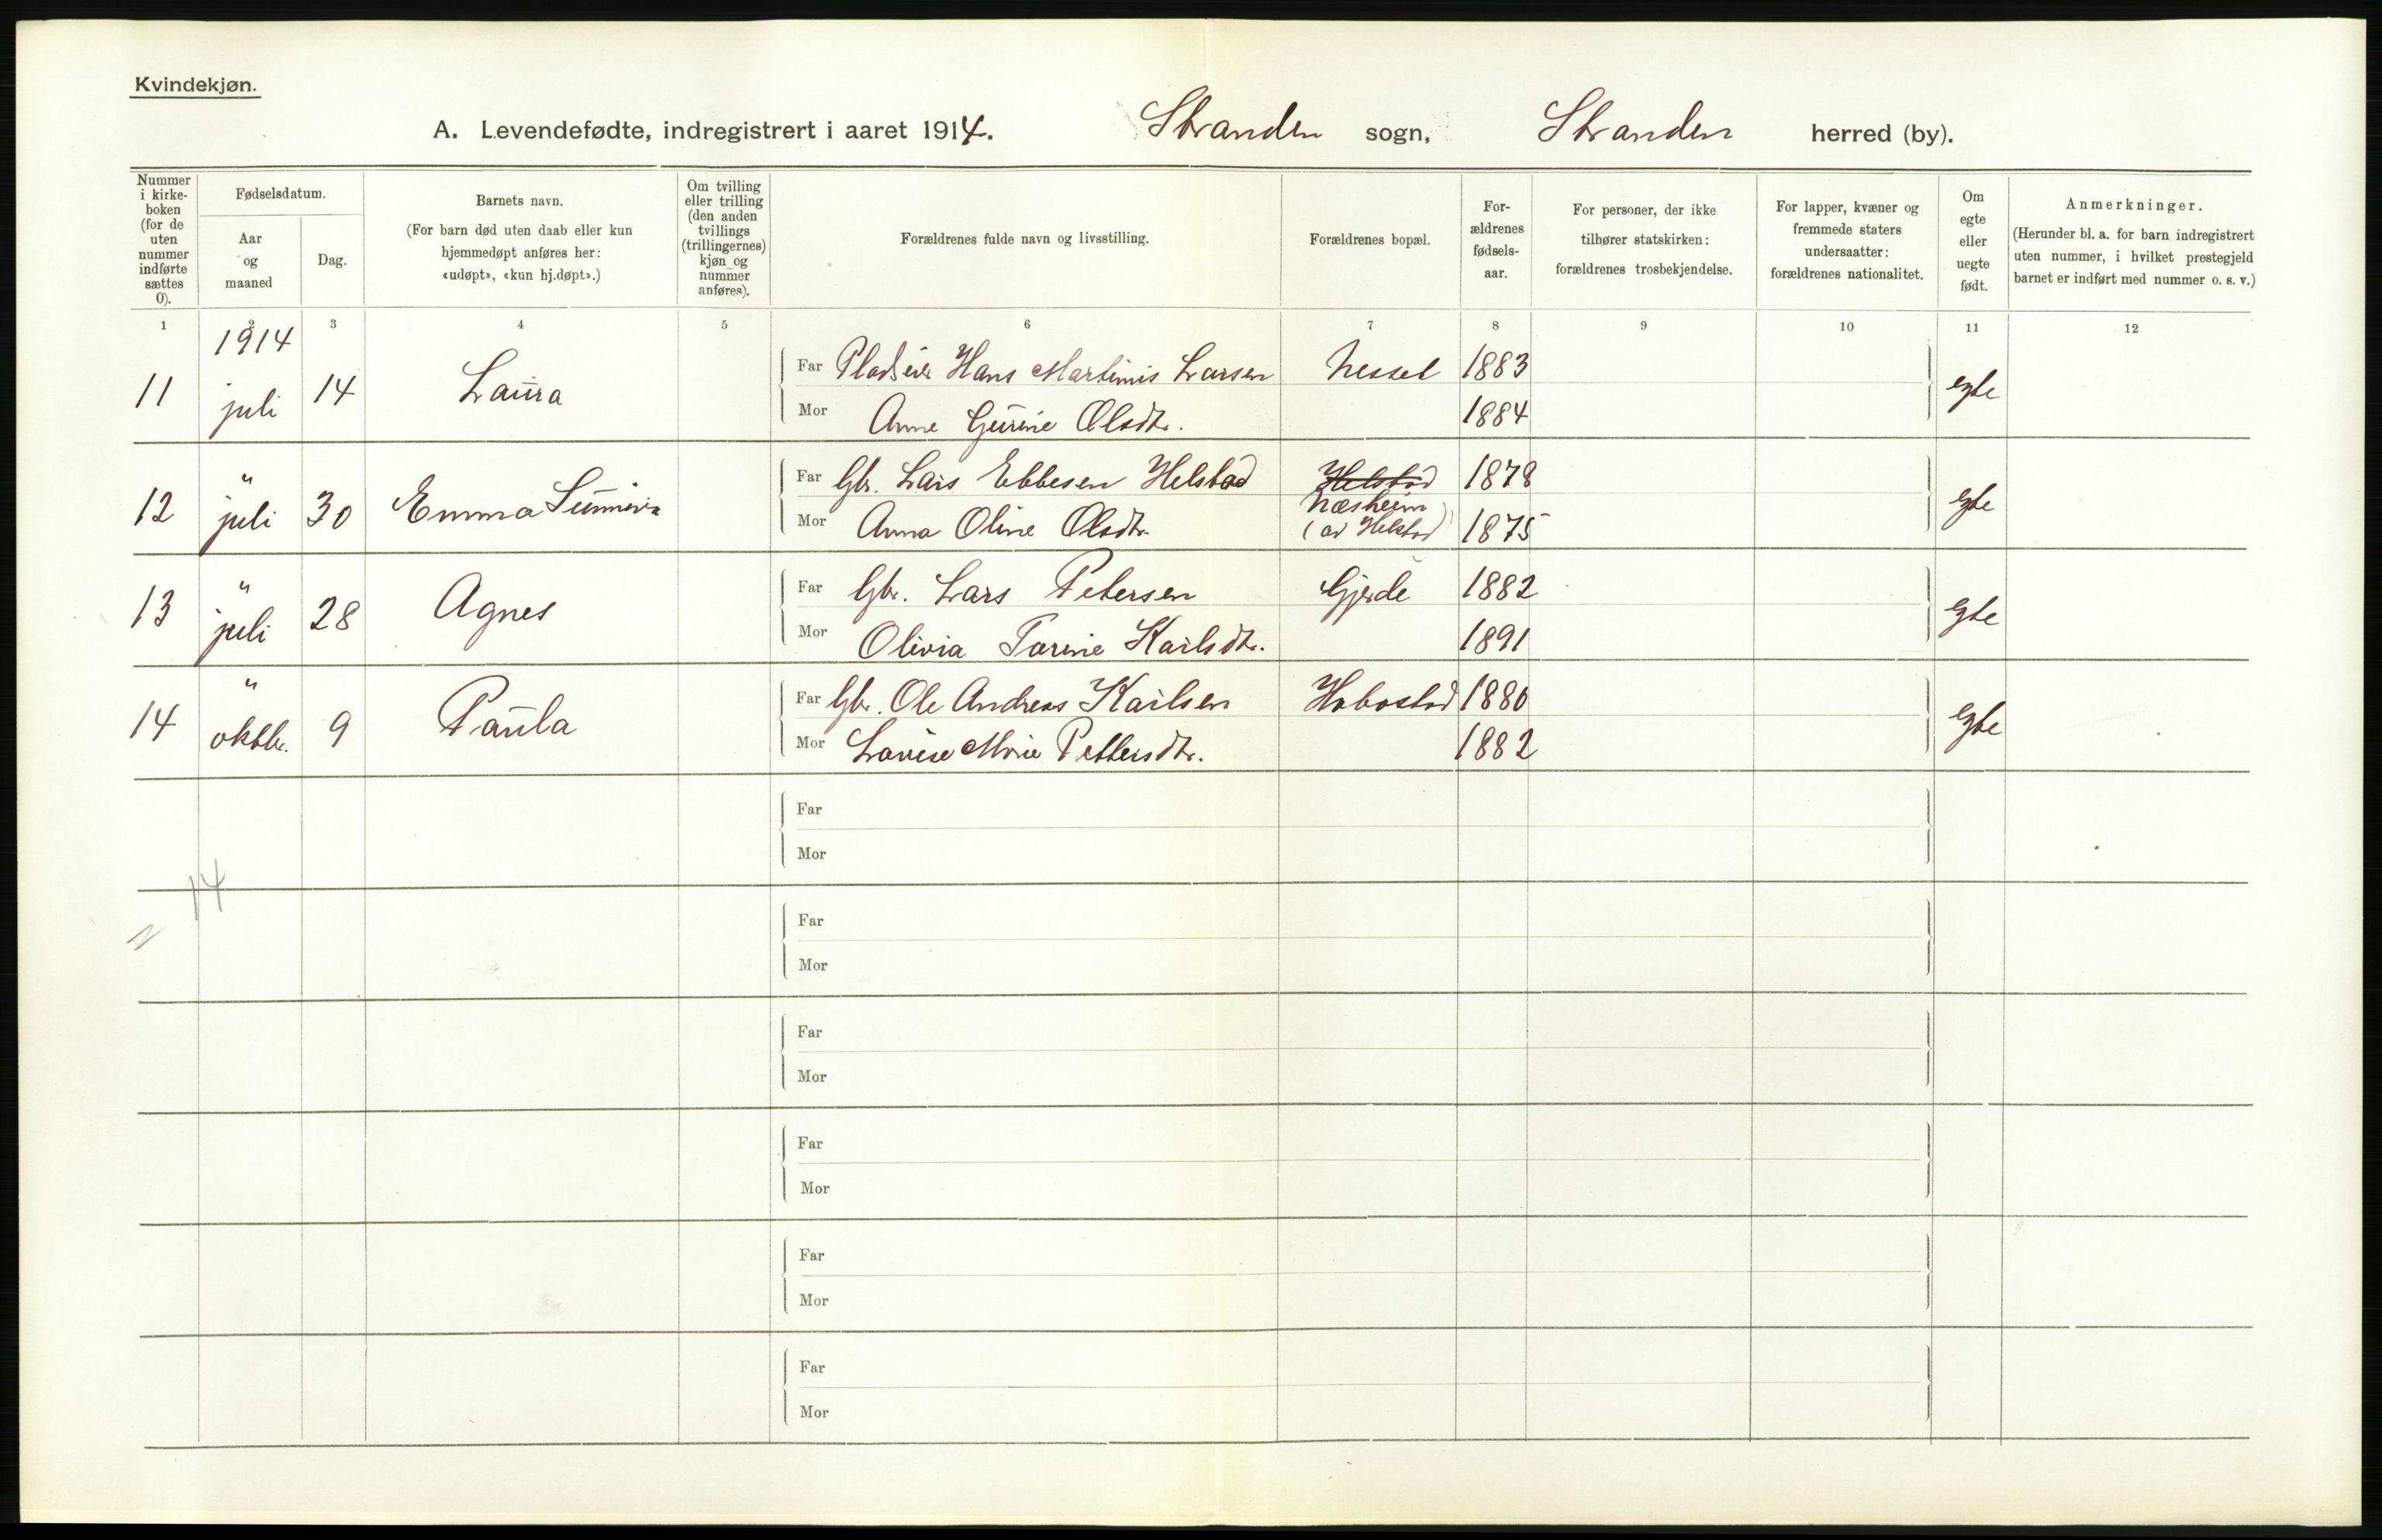 Kvindekjøn.
A. Levendefødte, indregistrert i aaret 1914. Stranden sogn, Stranden herred (by).
Nummer i kirke-boken (for de uten nummer indførte sættes 0).
Fødselsdatum.
Aar og maaned
Dag.
Barnets navn.
(For barn død uten daab eller kun hjemmedøpt anføres her: «udøpt», «kun hj.døpt».)
Om tvilling eller trilling (den anden tvillings (trillingernes) kjøn og nummer anføres).
Forældrenes fulde navn og livsstilling.
Forældrenes bopæl.
For-ældrenes fødsels-aar.
For personer, der ikke tilhører statskirken: forældrenes trosbekjendelse.
For lapper, kvæner og fremmede staters undersaatter: forældrenes nationalitet.
Om egte eller uegte født.
Anmerkninger.
(Herunder bl. a. for barn indregistrert uten nummer, i hvilket prestegjeld barnet er indført med nummer o. s. v.)
1 2 3 4 5 6 7 8 9 10 11 12
1914
11 juli 14 Laura Far Pladseier Hans Martinius Larsen Nesset 1883 egte
Mor Anne Gurine Olsdtr. 1884
12 " juli 30 Emma Sunniva Far Gbr. Lars Ebbesen Helstad Helstad 1878 egte
Næsheim
Mor Anna Oline Olsdtr. (av Helstad) 1875
13 " juli 28 Agnes Far Gbr. Lars Petersen Gjerde 1882 egte
Mor Olivia Torine Karlsdtr. 1891
14 " oktbr. 9 Paula Far Gbr. Ole Andreas Karlsen Habostad 1880 egte
Mor Lovise Marie Pettersdtr. 1882
Far
Mor
14
Far
Mor
Far
Mor
Far
Mor
Far
Mor
Far
Mor